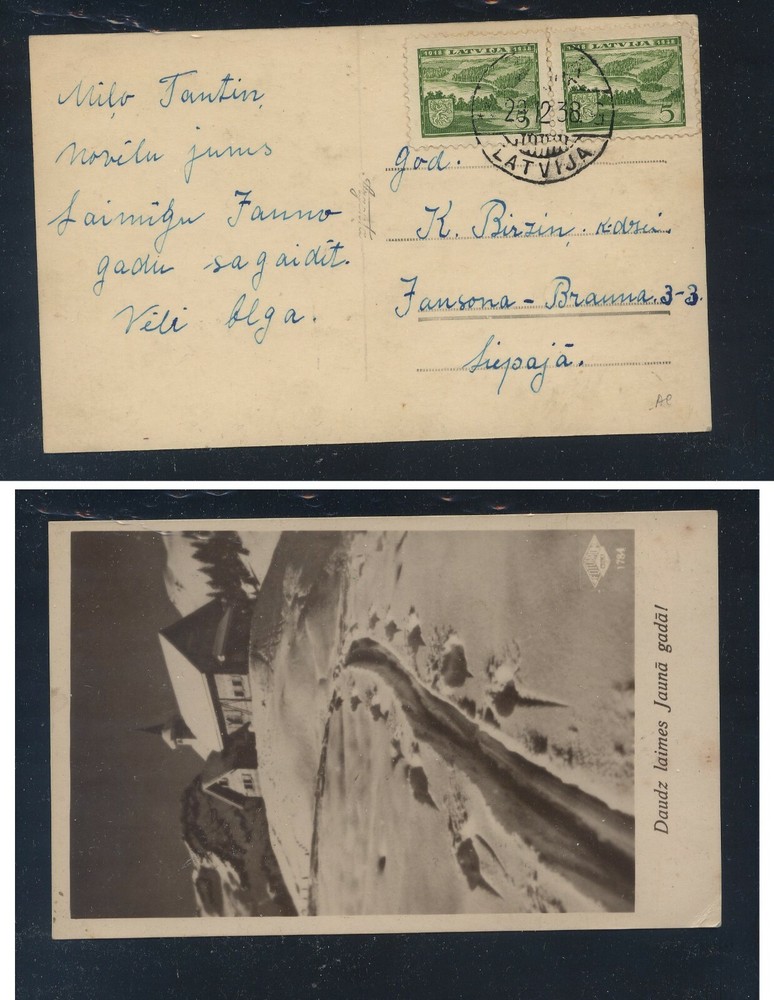 Miļo Tantiņ,
novēlu jums
Laimīgu Jauno
gadu sagaidīt.
Vēli Olga.
1918 LATVIJA 1938
LATVIJA 1938
5
28 12 38
LATVIJA
God.
K. Birziņ. k-dzei.
Jansona - Brauna. 3-3.
Liepajā.
AC
1784
Daudz laimes Jaunā gadā!